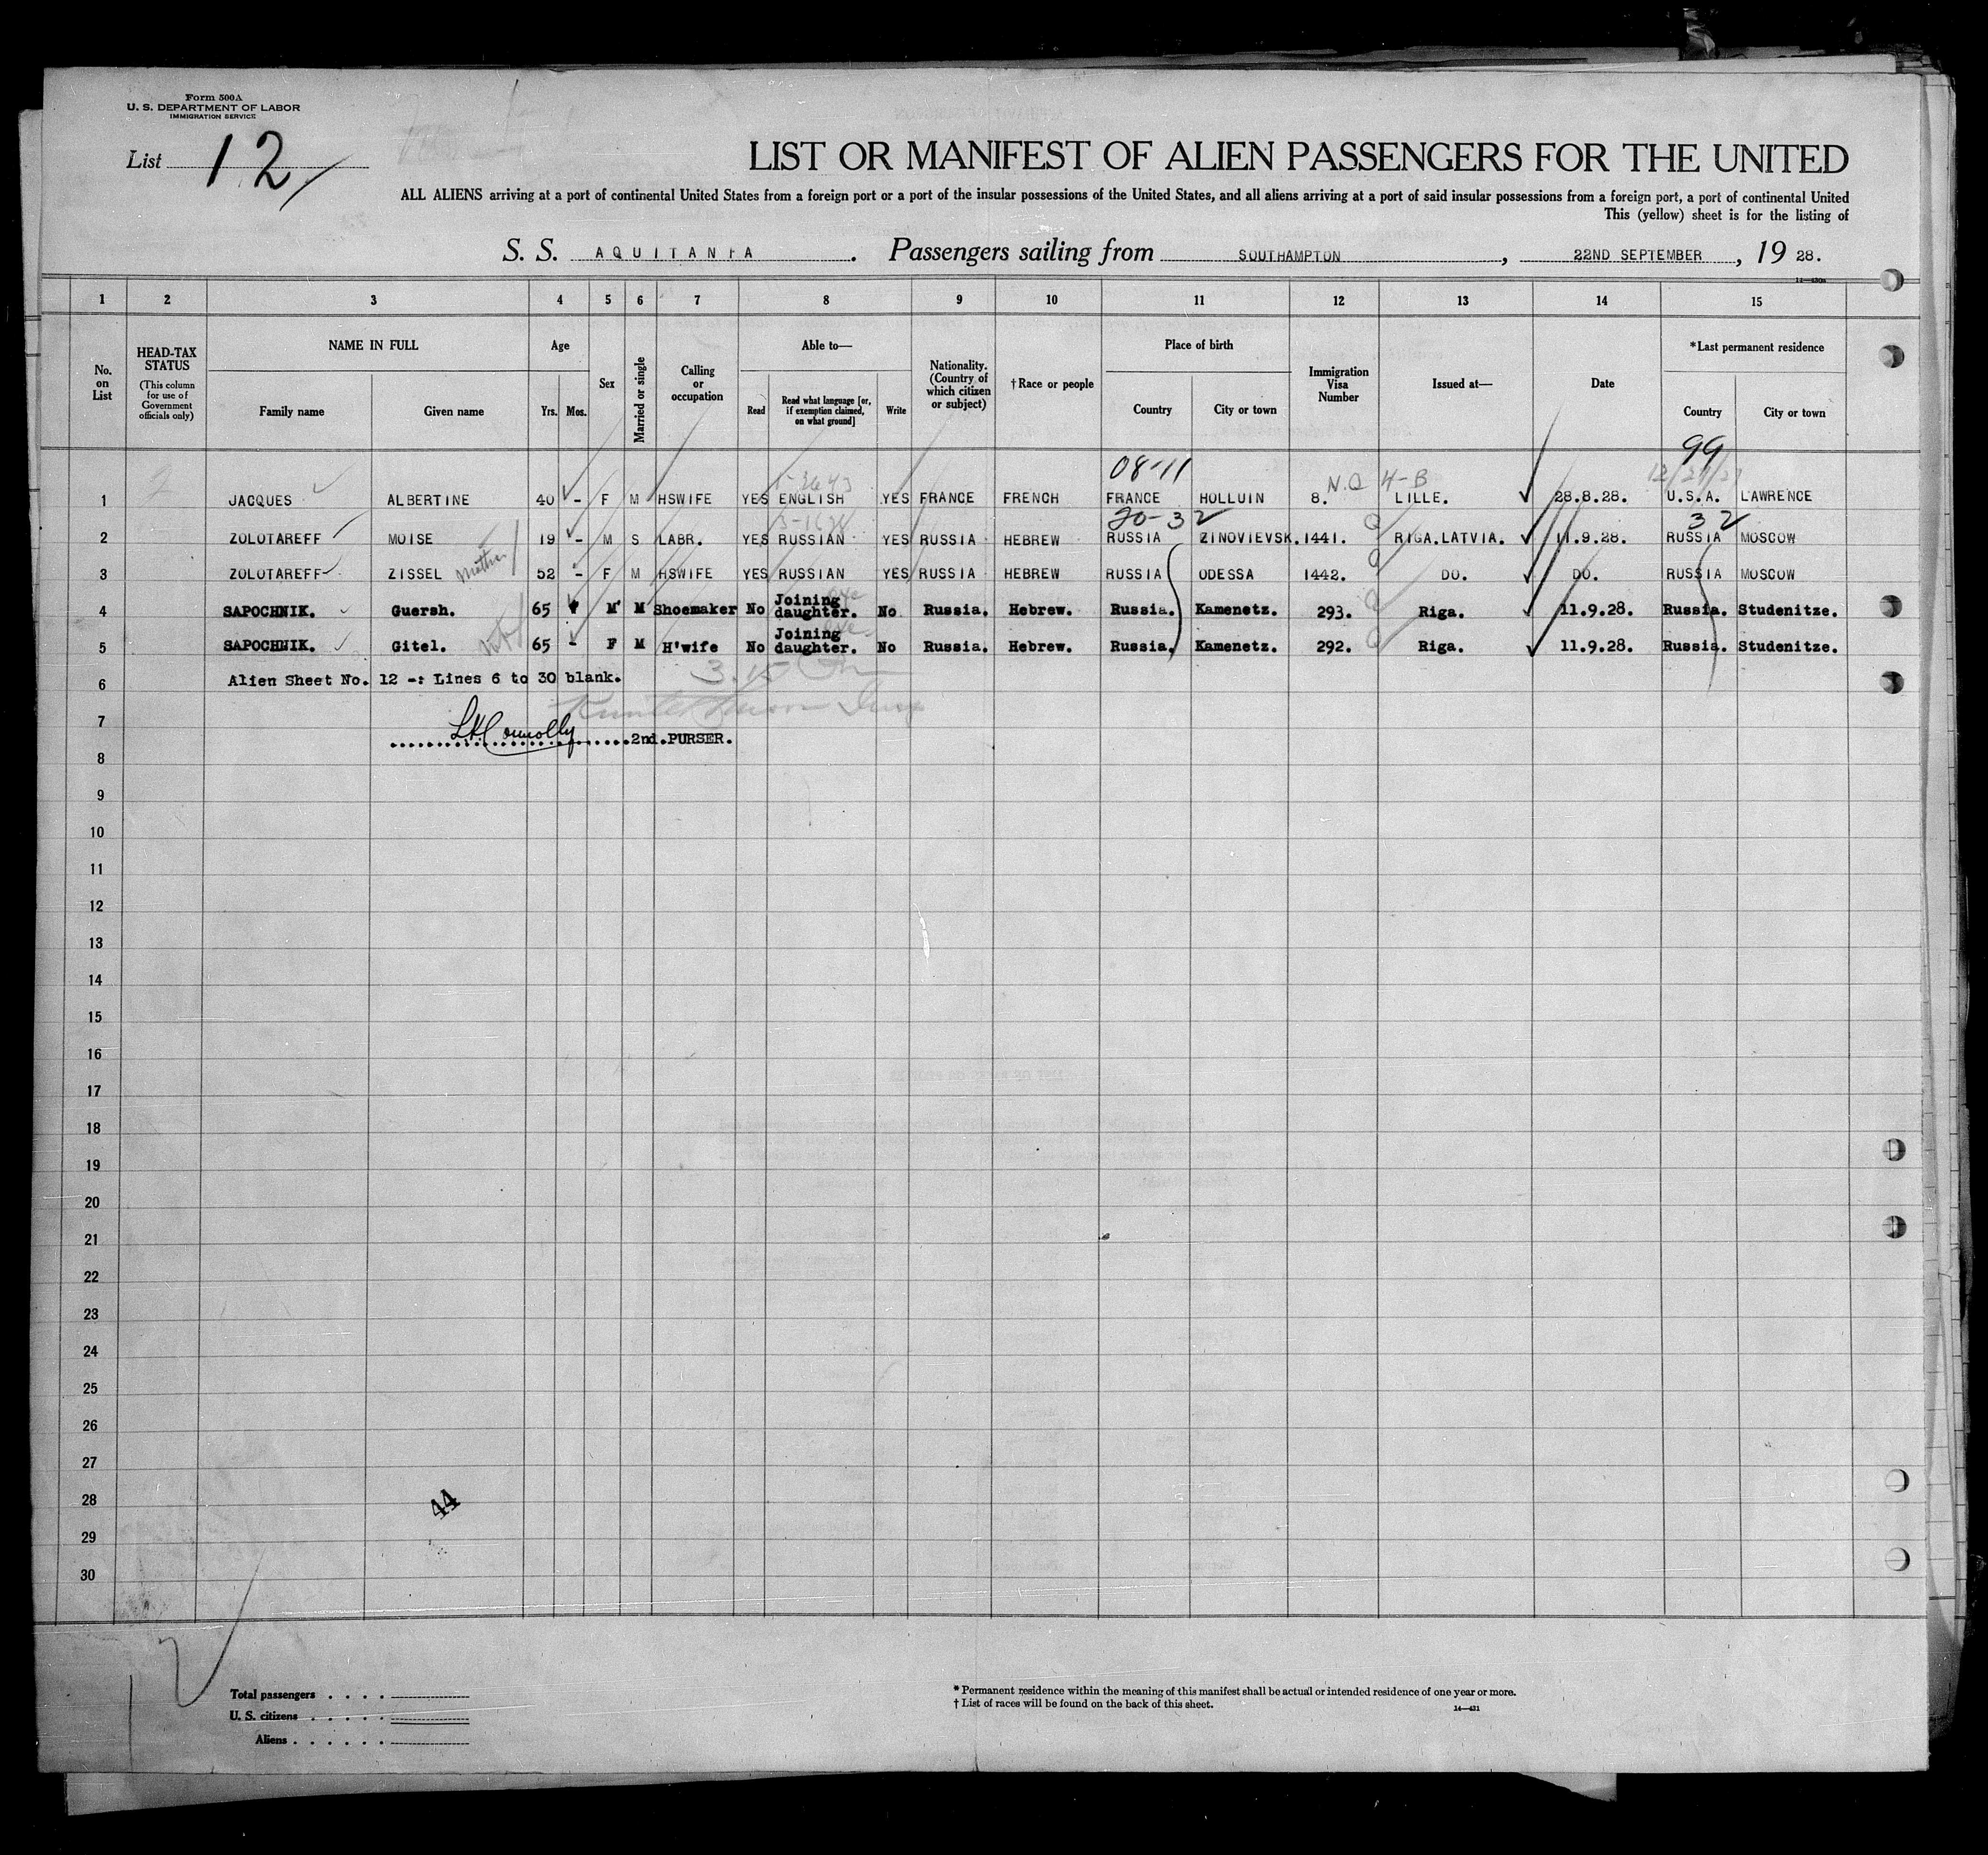 Form 500A
U. S. DEPARTMENT OF LABOR
IMMIGRATION SERVICE
List 12
LIST OR MANIFEST OF ALIEN PASSENGERS FOR THE UNITED
ALL ALIENS arriving at a port of continental United States from a foreign port or a port of the insular possessions of the United States, and all aliens arriving at a port of said insular possessions from a foreign port, a port of continental United
This (yellow) sheet is for the listing of
S. S. AQUITANIA. Passengers sailing from SOUTHAMPTON, 22ND SEPTEMBER, 19 28.
14—430a
1 2 3 4 5 6 7 8 9 10 11 12 13 14 15
No. on List
HEAD-TAX STATUS (This column for use of Government officials only)
NAME IN FULL
Family name Given name
Age
Yrs. Mos.
Sex
Married or single
Calling or occupation
Able to—
Read Read what language [or, if exemption claimed, on what ground] Write
Nationality. (Country of which citizen or subject)
† Race or people
Place of birth
Country City or town
Immigration Visa Number
Issued at—
Date
* Last permanent residence
Country City or town
08-11 N.Q 4-B 99
1 JACQUES ALBERTINE 40 - F M HSWIFE YES ENGLISH YES FRANCE FRENCH FRANCE HOLLUIN 8. LILLE. 28.8.28. U.S.A. LAWRENCE
20-32 32
2 ZOLOTAREFF MOISE 19 - M S LABR. YES RUSSIAN YES RUSSIA HEBREW RUSSIA ZINOVIEVSK. 1441. RIGA.LATVIA. 11.9.28. RUSSIA MOSCOW
3 ZOLOTAREFF ZISSEL mother 52 - F M HSWIFE YES RUSSIAN YES RUSSIA HEBREW RUSSIA ODESSA 1442. DO. DO. RUSSIA MOSCOW
4 SAPOCHNIK. Guersh. 65 M M Shoemaker No Joining daughter. No Russia. Hebrew. Russia. Kamenetz. 293. Riga. 11.9.28. Russia. Studenitze.
5 SAPOCHNIK. Gitel. 65 - F M H'wife No Joining daughter. No Russia. Hebrew. Russia. Kamenetz. 292. Riga. 11.9.28. Russia. Studenitze.
6 Alien Sheet No. 12 -: Lines 6 to 30 blank. 3.15
7 L H Connolly 2nd.PURSER.
8
9
10
11
12
13
14
15
16
17
18
19
20
21
22
23
24
25
26
27
28 44
29
30
Total passengers . . . .
U. S. citizens . . . . .
Aliens . . . . . .
* Permanent residence within the meaning of this manifest shall be actual or intended residence of one year or more.
† List of races will be found on the back of this sheet.
14—431